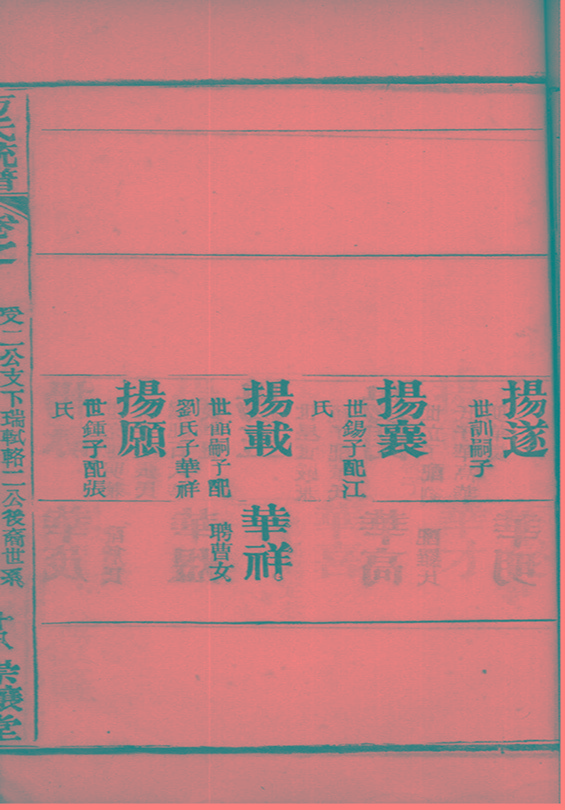 揚遂
世訓嗣子
揚襄
世錫子配江
氏
揚載
世 嗣子配
劉氏子華祥
華祥
聘曹女
揚願
世鍾子配張
氏
氏統譜
卷之一
受二公支下瑞軾輅二公後裔世系
十八
崇讓堂